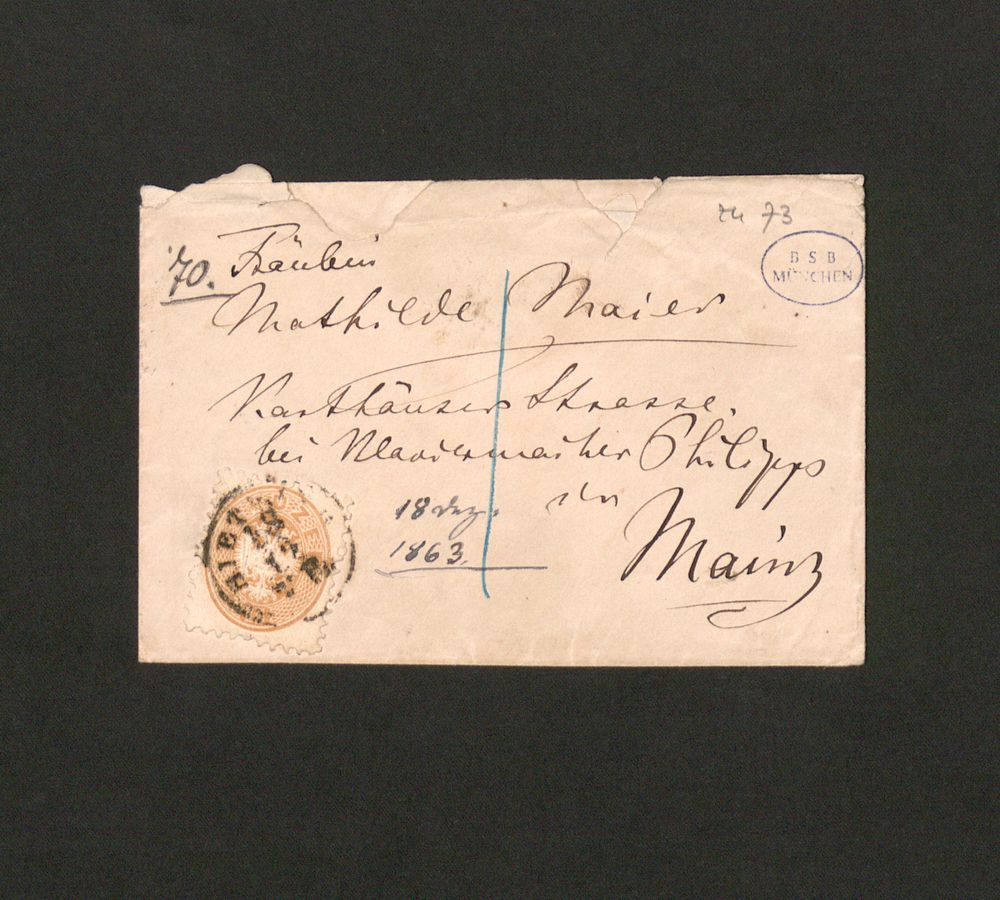 zu 73
BSB
MÜNCHEN
70.
Fräulein
Mathilde Maier
Karthäuser Strasse.
bei Klaviermacher Philipps
in
Mainz
18 Dez.
1863.
WIEN